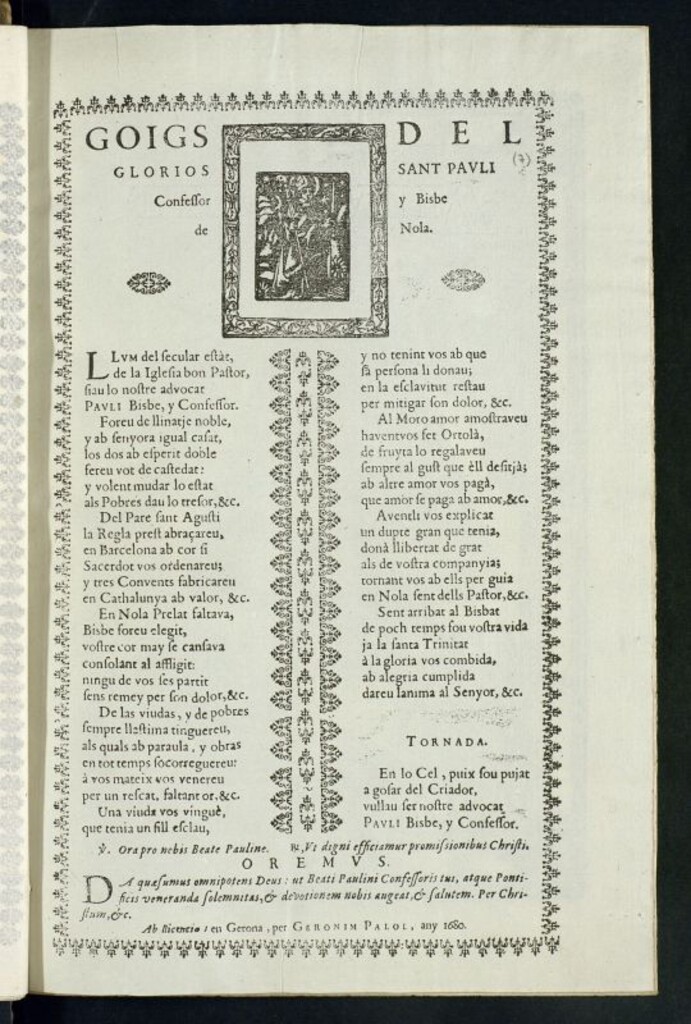 GOIGS DEL
(7)
GLORIOS SANT PAVLI
Confeſſor y Bisbe
de Nola.
LLVM del ſecular eſtàt,
de la Igleſia bon Paſtor,
ſiau lo noſtre advocat
PAVLI Bisbe, y Confeſſor.
Foreu de llinatje noble,
y ab ſenyora igual caſat,
los dos ab eſperit doble
fereu vot de caſtedat:
y volent mudar lo eſtat
als Pobres dau lo treſor, &c.
Del Pare ſant Aguſti
la Regla preſt abraçareu,
en Barcelona ab cor fi
Sacerdot vos ordenareu;
y tres Convents fabricareu
en Cathalunya ab valor, &c.
En Nola Prelat faltava,
Bisbe foreu elegit,
voſtre cor may ſe canſava
conſolant al affligit:
ningu de vos ſes partit
ſens remey per ſon dolor, &c.
De las viudas, y de pobres
ſempre llaſtima tinguereu,
als quals ab paraula, y obras
en tot temps ſocorreguereu:
à vos mateix vos venereu
per un reſcat, faltant or, &c.
Una viuda vos vinguè,
que tenia un fill eſclau,
y no tenint vos ab que
ſa perſona li donau;
en la eſclavitut reſtau
per mitigar ſon dolor, &c.
Al Moro amor amoſtraveu
haventvos fet Ortolà,
de fruyta lo regalaveu
ſempre al guſt que èll deſitjà;
ab altre amor vos pagà,
que amor ſe paga ab amor, &c.
Aventli vos explicat
un dupte gran que tenia,
donà llibertat de grat
als de voſtra companyia;
tornant vos ab ells per guia
en Nola ſent dells Paſtor, &c.
Sent arribat al Bisbat
de poch temps fou voſtra vida
ja la ſanta Trinitat
à la gloria vos combida,
ab alegria cumplida
dareu lanima al Senyor, &c.
TORNADA.
En lo Cel, puix ſou pujat
a goſar del Criador,
vullau ſer noſtre advocat
PAVLI Bisbe, y Confeſſor.
℣. Ora pro nobis Beate Pauline. ℟. Vt digni efficiamur promiſſionibus Chriſti.
OREMVS.
DA quæſumus omnipotens Deus: ut Beati Paulini Confeſſoris tui, atque Ponti-
ficis veneranda ſolemnitas, & devotionem nobis augeat, & ſalutem. Per Chri-
ſtum, &c.
Ab llicencia: en Gerona, per GERONIM PALOL, any 1680.